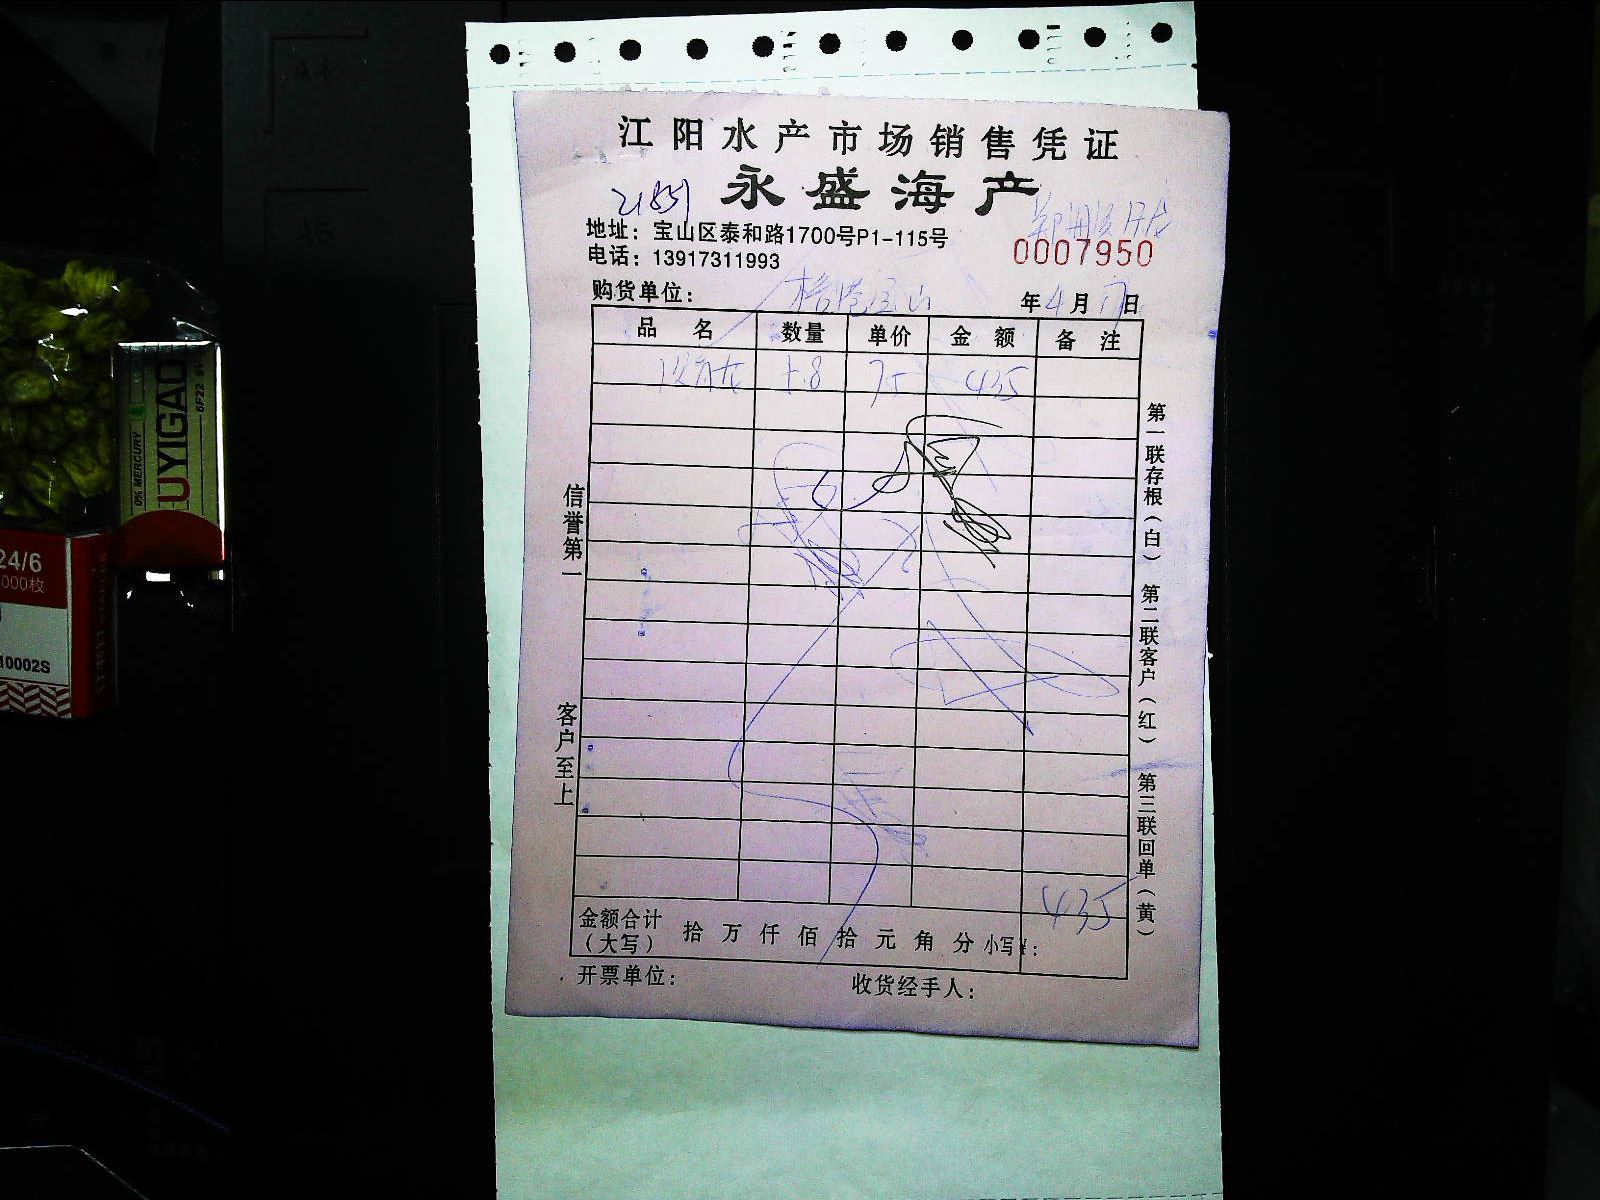 江阳水产市场销售凭证
永盛海产
21851
地址：宝山区泰和路1700号P1-115号
电话：13917311993
0007950
购货单位：
年4月17日
品名 数量 单价 金额 备注
5.8 75 435
信誉第一
客户至上
第一联存根（白） 第二联客户（红） 第三联回单（黄）
435
金额合计（大写） 拾 万 仟 佰 拾 元 角 分 小写¥：
开票单位：
收货经手人：
0% MERCURY
6F22 9V
UYIGAO
24/6
000枚
10002S